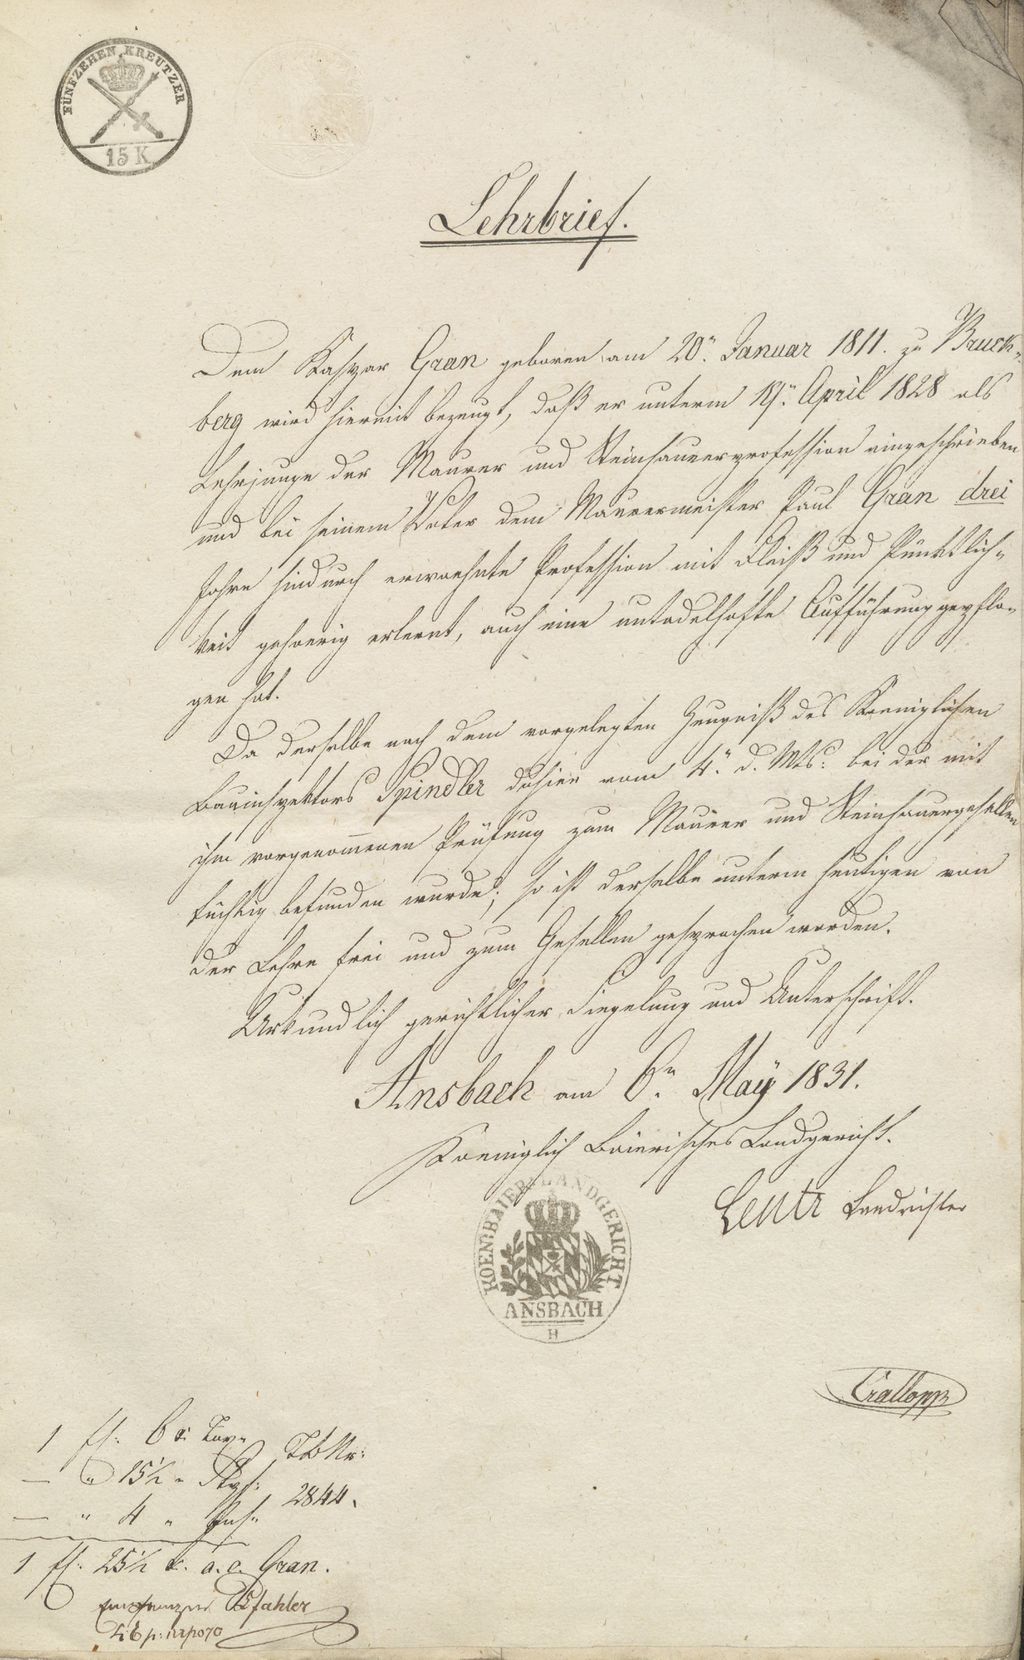 FÜNFZEHEN KREUTZER
15 K
Lehrbrief.
Dem Kaspar Gran geboren am 20.n Januar 1811. zu Bruck-
berg wird hiermit bezeugt, daß er unterm 19.n April 1828 als
Lehrjunge der Maurer und Steinhauerprofession eingeschrieben
und bei seinem Vater dem Maurermeister Paul Gran drei
Jahre hindurch erwaehnte Profession mit Fleiß und Pünktlich-
keit gehoerig erlernt, auch eine untadelhafte Aufführung gepflo-
gen hat.
Da derselbe nach dem vorgelegten Zeugniß des Koeniglichen
Bauinspektors Spindler dahier vom 4.n d. Mts. bei der mit
ihm vorgenommenen Prüfung zum Maurer und Steinhauergesellen
tüchtig befunden wurde; so ist derselbe unterm heutigen von
der Lehre frei und zum Gesellen gesprochen worden.
Urkundlich gerichtlicher Siegelung und Unterschrift.
Ansbach am 6.n Maÿ 1831.
Koeniglich Baierisches Landgericht.
Landrichter
KOEN. BAIER. LANDGERICHT
ANSBACH
H
1 fl. 6 x. Tax.
— " 15 1/2 "
2844.
— " 4 "
1 fl. 25 1/2 x. a. c. Gran.
Pfahler